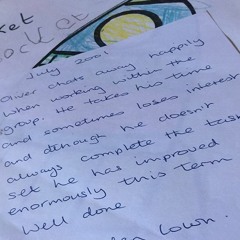 ket
ocket
July 2001
Oliver chats away happily
when working within the
group. He takes his time
and sometimes loses interest
and although he doesn't
always complete the task
set he has improved
enormously this term
Well done